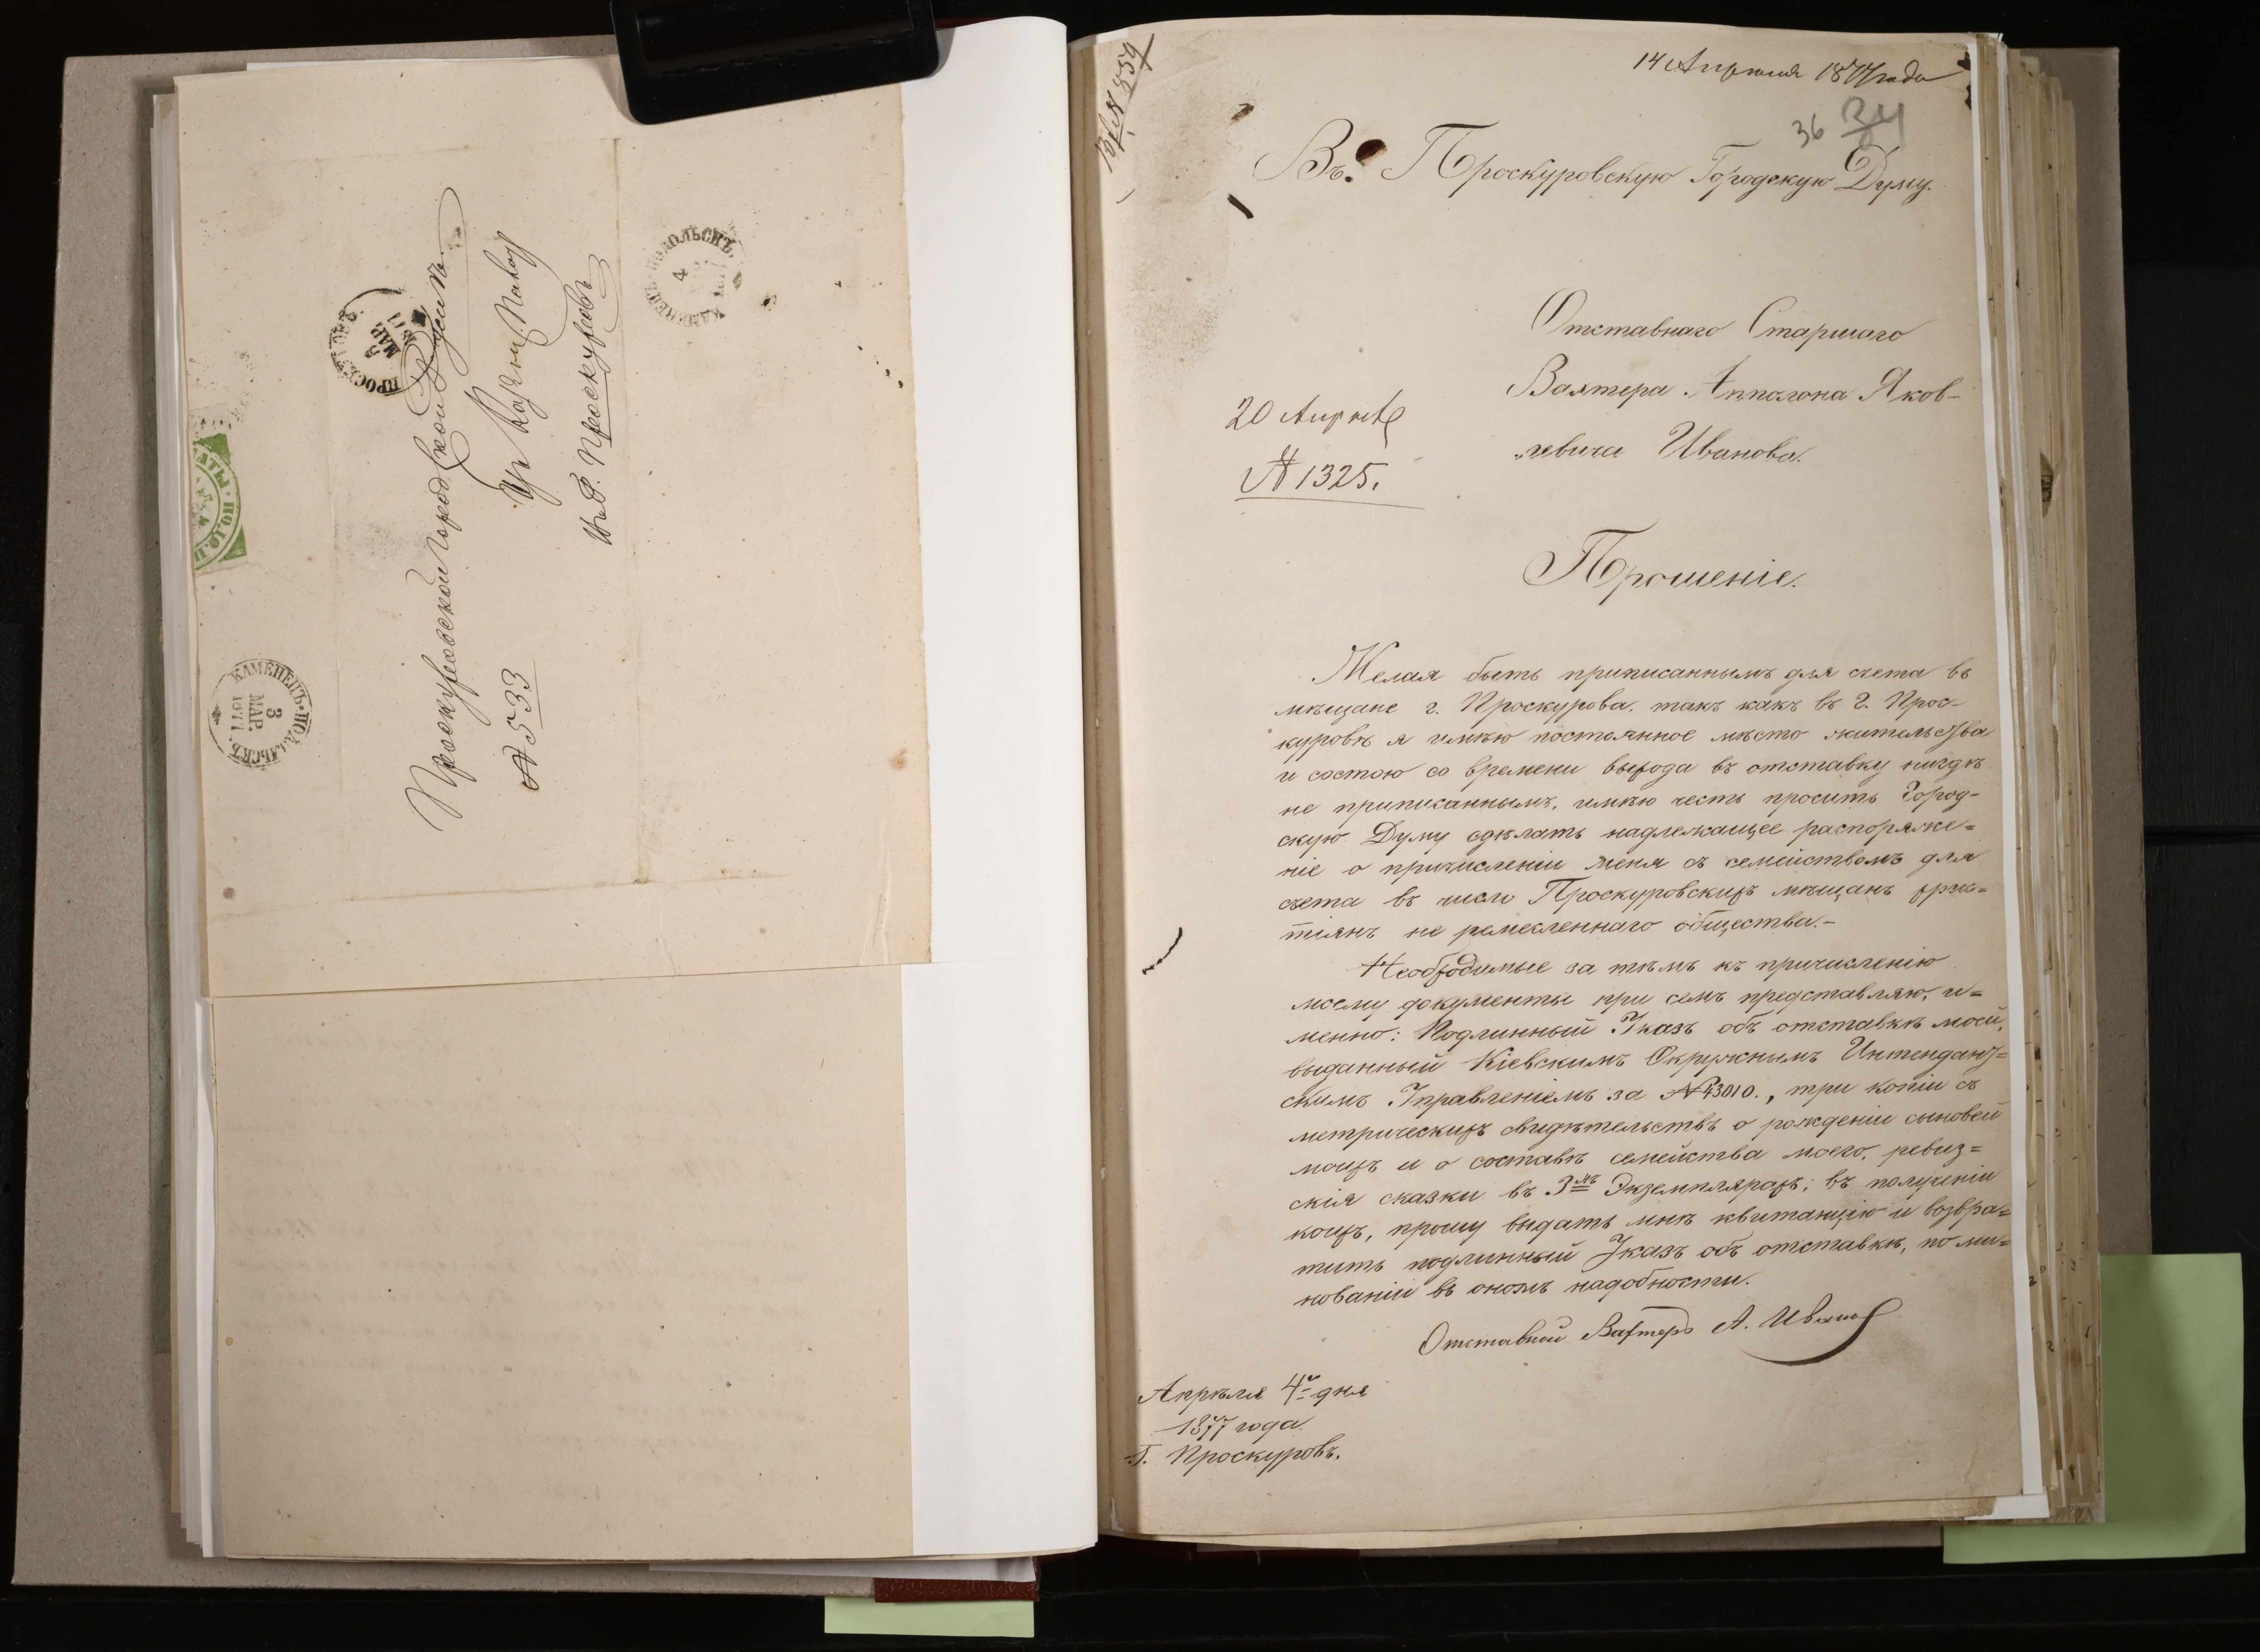 Проскуровской Городской Думѣ
въ г. Проскуровъ
№ 533
ПРОСКУРОВЪ
3
МАР.
1877
КАМЕНЕЦЪ-ПОДОЛЬСКЪ.
4
КАМЕНЕЦЪ-ПОДОЛЬСКЪ.
3
МАР.
1877
Вх. № 859
14 Апрѣля 1877 года
36 34
Въ Проскуровскую Городскую Думу.
Отставнаго Старшаго
Вахтера Апполона Яков-
левича Иванова.
20 Апрѣля
№ 1325.
Прошеніе.
Желая быть приписаннымъ для счета въ
мѣщане г. Проскурова. такъ какъ въ г. Прос-
куровѣ я имѣю постоянное мѣсто жительства
и состою со времени выхода въ отставку нигдѣ
не приписаннымъ, имѣю честь просить Город-
скую Думу сдѣлать надлежащее распоряже=
ніе о причисленіи меня съ семействомъ для
счета въ число Проскуровскихъ мѣщанъ хрис=
тіянъ не ремесленнаго общества.-
Необходимые за тѣмъ къ причисленію
моему документы при семъ представляю, и=
менно: Подлинный Указъ объ отставкѣ моей,
выданный Кіевскимъ Окружнымъ Интендант=
скимъ Управленіемъ за № 43010., три копіи съ
метрическихъ свидѣтельствъ о рожденіи сыновей
моихъ и о составѣ семейства моего, ревиз=
скія сказки въ 3хъ Экземплярахъ; въ полученіи
коихъ, прошу выдать мнѣ квитанцію и возвра=
тить подлинный Указъ объ отставкѣ, по ми=
нованіи въ ономъ надобности.
Отставной Вахтеръ А. Иванов
Апрѣля 4го дня
1877 года.
Г. Проскуровъ.